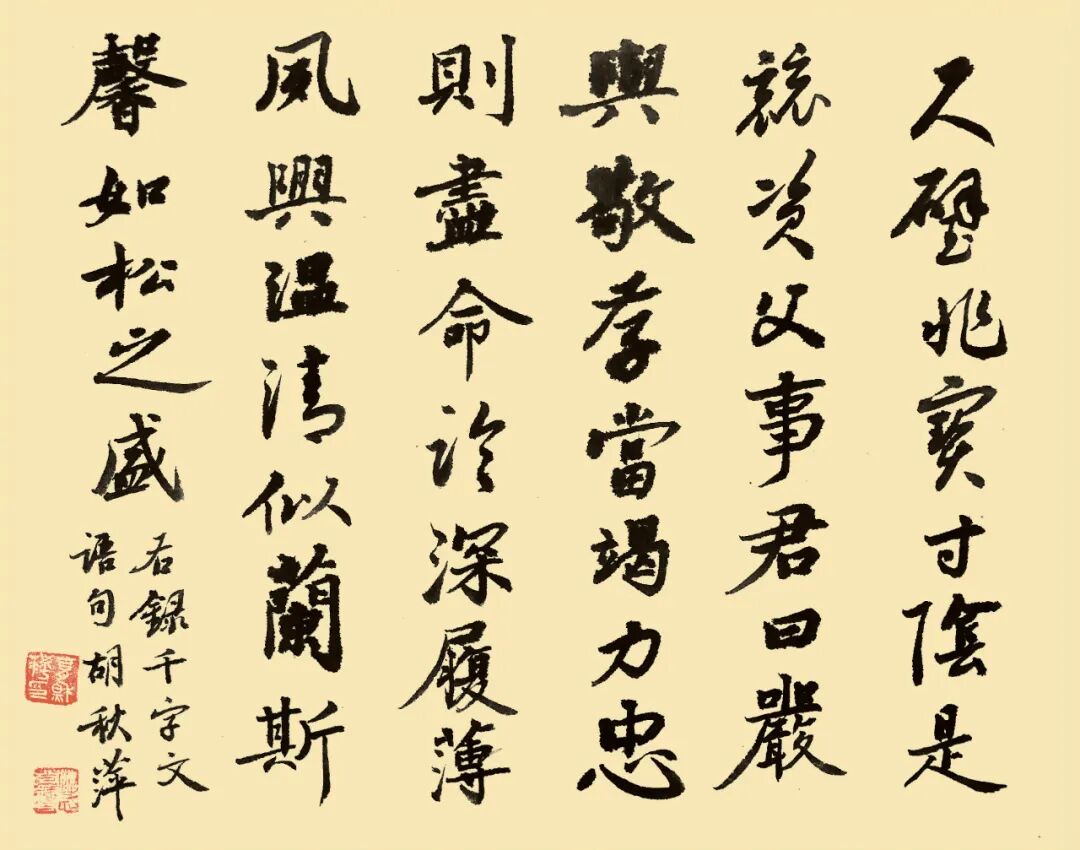 尺璧非寶寸陰是
競資父事君曰嚴
與敬孝當竭力忠
則盡命臨深履薄
夙興温清似蘭斯
馨如松之盛
右録千字文
語句胡秋萍